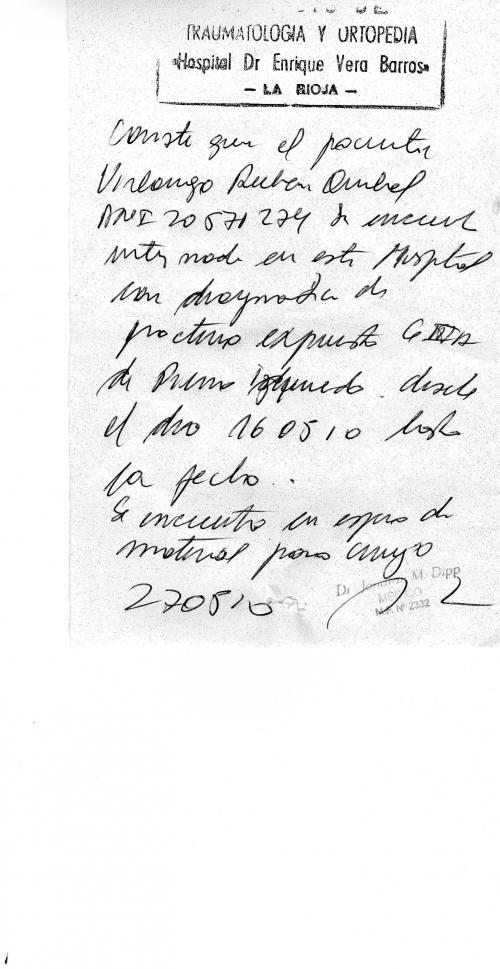 TRAUMATOLOGIA Y ORTOPEDIA
"Hospital Dr Enrique Vera Barros"
- LA RIOJA -
Conste que el paciente
Ruben
DNI 20571274 Se encuent
internado en este Hospital
con diagnostico de
fractura expuesta GIIIA
de Pierna Izquierda desde
el dia 160510 hasta
la fecha.
Se encuentra en espera de
material para cirugia
270510
Dr. M. Dipp
MEDICO
M.P. Nº 2332